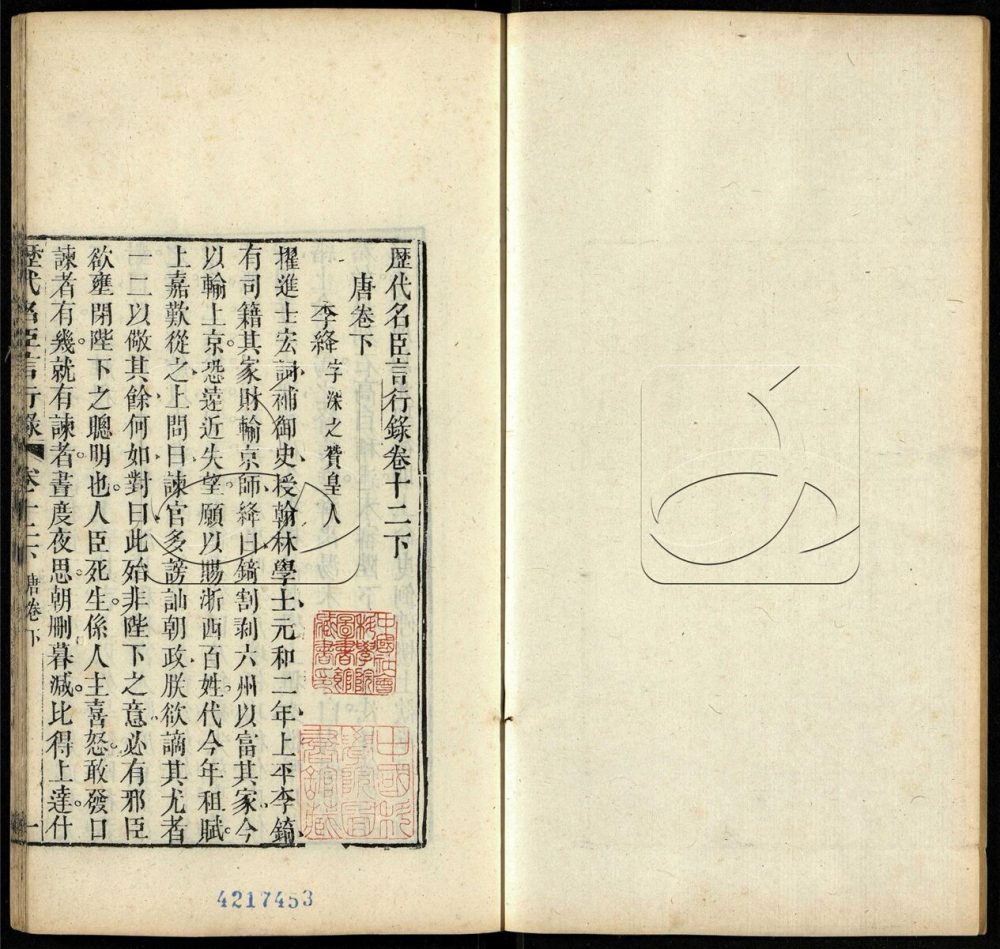 歴代名臣言行錄卷十二下
唐卷下
李絳字深之贊皇人
擢進士宏詞補御史授翰林學士元和二年上平李錡
有司籍其家財輸京師絳曰錡割剥六州以富其家今
以輸上京恐遠近失望願以賜浙西百姓代今年租賦
上嘉歎從之上問曰諫官多謗訕朝政朕欲謫其尤者
一二以儆其餘何如對曰此殆非陛下之意必有邪臣
欲壅閉陛下之聰明也人臣死生係人主喜怒敢發口
諫者有幾就有諫者晝度夜思朝刪暮減比得上達什
歴代名臣言行錄 卷十二下 唐卷下 一
中國社會科學院圖書館藏書印
中國科學院圖書館藏
4217453